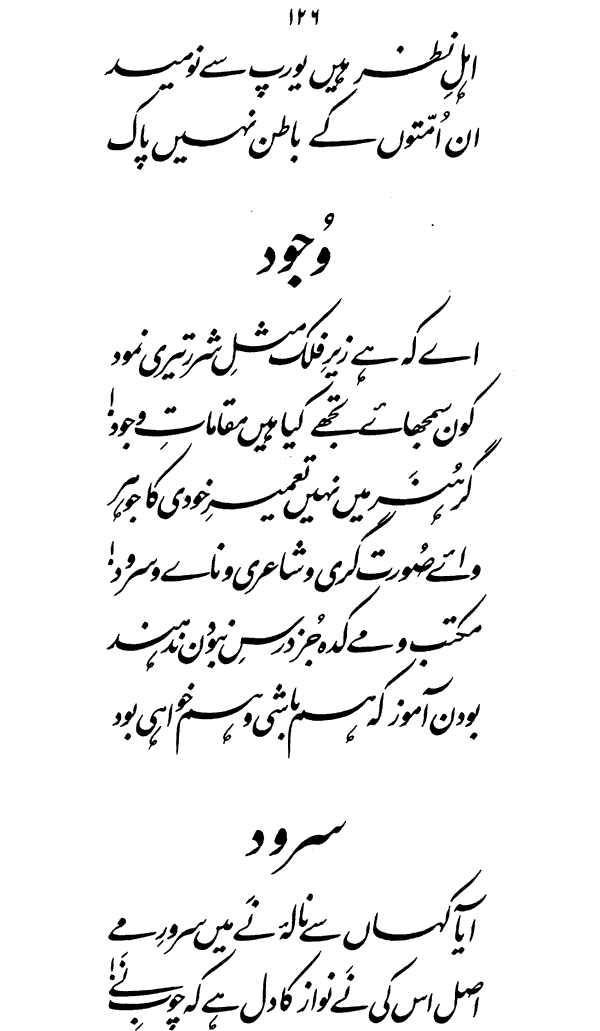 ۱۲۶
اہلِ نظر ہیں یورپ سے نومید
ان اُمّتوں کے باطن نہیں پاک
وُجود
اے کہ ہے زیرِ فلک مثلِ شرر تیری نمود
کون سمجھائے تجھے کیا ہیں مقاماتِ وجود!
گر ہُنَر میں نہیں تعمیرِ خودی کا جوہر
وائے صُورت گری و شاعری و نائے و سرود!
مکتب و مے کدہ جُز درسِ نبودن ندہند
بودن آموز کہ ہم باشی و ہم خواہی بود
سرود
آیا کہاں سے نالۂ نَے میں سرورِ مے
اصل اس کی نَے نواز کا دل ہے کہ چوبِ نَے!